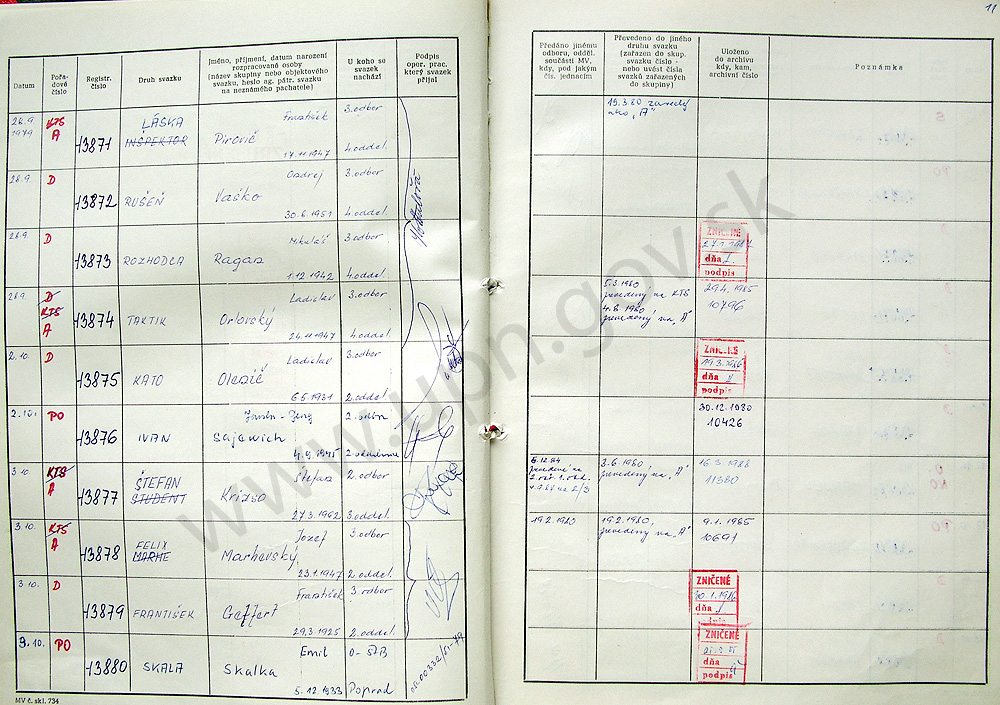 11
Datum
Pořa-
dové
číslo
Registr.
číslo
Druh svazku
Jméno, příjmení, datum narození
rozpracované osoby
(název skupiny nebo objektového
svazku, heslo ag. pátr. svazku
na neznámého pachatele)
U koho se
svazek
nachází
Podpis
oper. prac.
který svazek
přijal
Předáno jinému
odboru, odděl.
součásti MV,
kdy, pod jakým
čís. jednacím
Převedeno do jiného
druhu svazku
(zařazen do skup.
svazku číslo -
nebo uvést čísla
svazků zařazených
do skupiny)
Uloženo
do archivu
kdy, kam,
archivní číslo
Poznámka
28.9. 1979 KTS A 13871 LÁSKA INŠPEKTOR František Pirovič 17.11.1947 3.odbor 4.oddel. 19.3.80 "A"
28.9. D 13872 RUŠEŇ Ondrej Vaško 30.6.1951 3.odbor 4.oddel.
28.9. D 13873 ROZHODCA Mikuláš Ragan 1.12.1942 3.odbor 4.oddel. ZNIČENÉ dňa podpis
28.9. D KTS A 13874 TAKTIK Ladislav Orlovský 24.11.1947 3.odbor 4.oddel. 5.3.1980 prevedený na KTS 4.8.1980 prevedený na "A" 29.4.1985 10796
2.10. D 13875 KATO Ladislav Olexič 6.5.1931 3.odbor 2.oddel. ZNIČENÉ 19.3.1986 dňa podpis
2.10. PO 13876 IVAN Sajewich 4.9.1945 2.odbor 30.12.1980 10426
3.10. KTS A 13877 ŠTEFAN ŠTUDENT Štefan Krizso 27.3.1962 2.odbor 3.oddel. 3.6.1980 prevedený na "A" 16.3.1988 11380
3.10. KTS A 13878 FELIX MARHE Jozef Marhevský 23.1.1947 3.odbor 2.oddel. 19.2.1980 19.2.1980, prevedený na "A" 9.1.1985 10691
3.10. D 13879 FRANTIŠEK František Geffert 29.3.1925 3.odbor 2.oddel. ZNIČENÉ 30.1.1986 dňa
9.10. PO 13880 SKALA Emil Skalka 5.12.1933 O-ŠTB Poprad ZNIČENÉ dňa podpis
MV č. skl. 734
www.upn.gov.sk